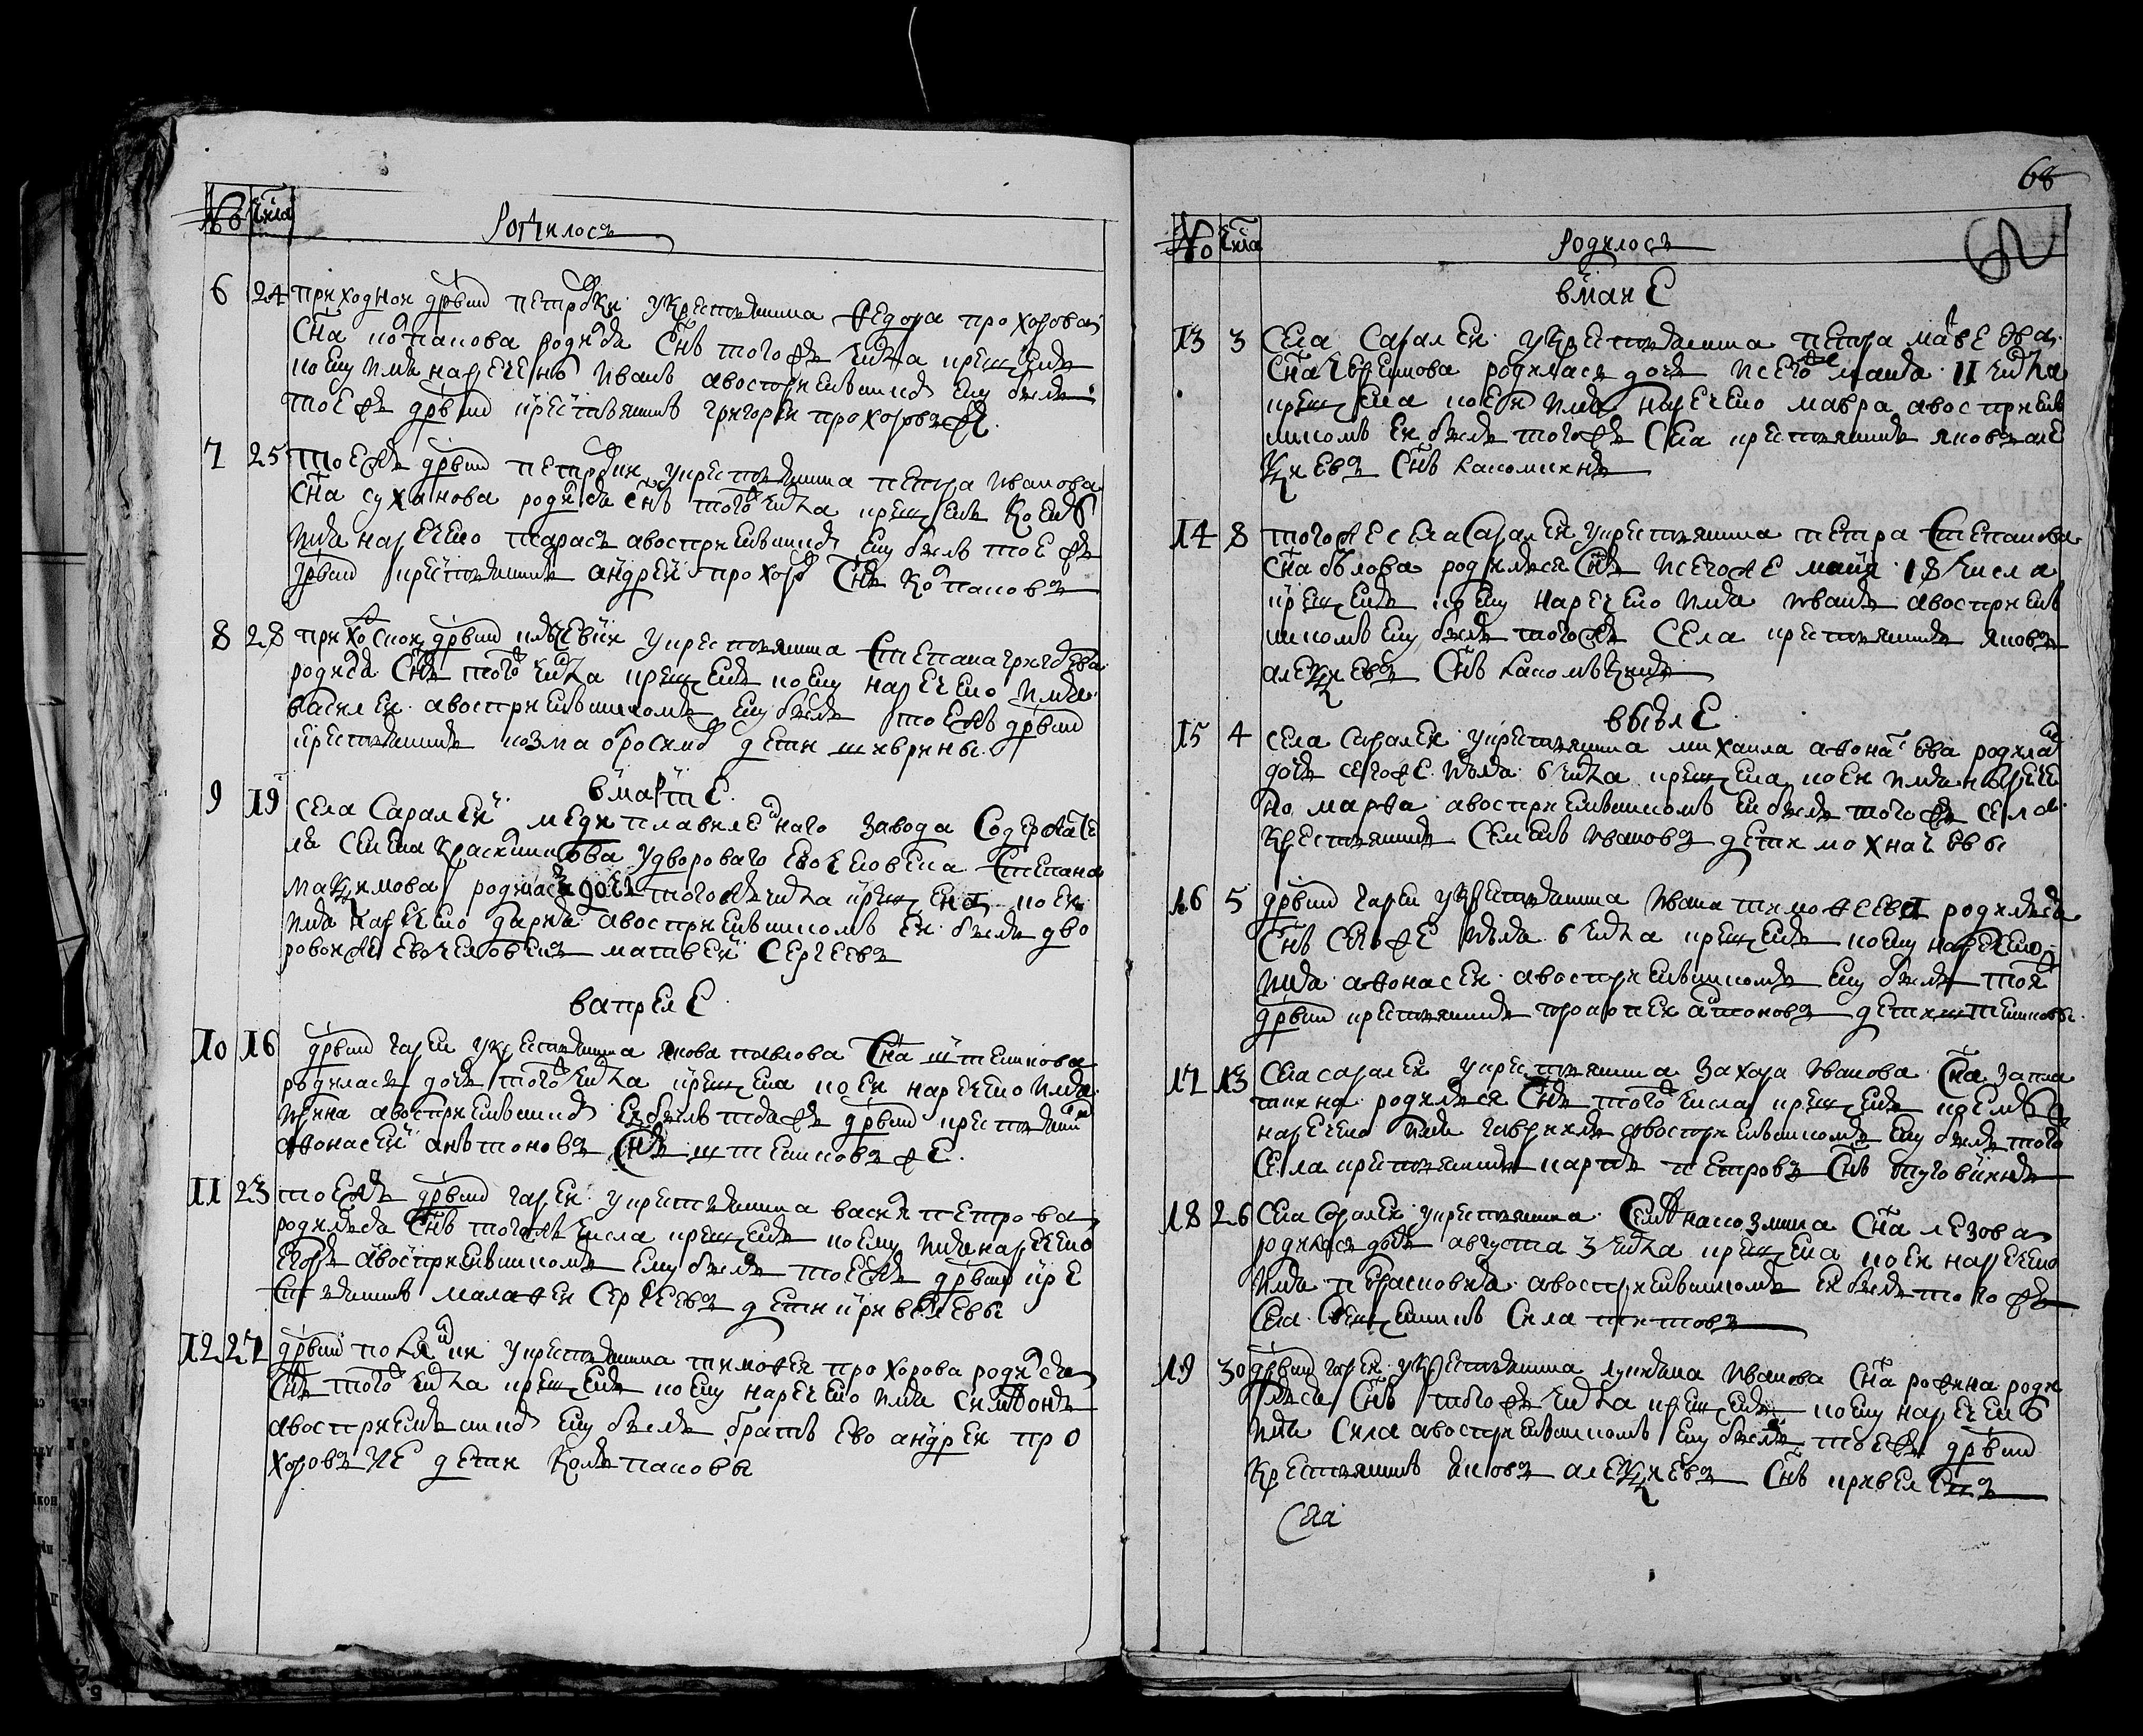 № числа Родилось
6 24 приходной дрвни петровки укрестьянина Федора прохорова
Сна колпанова родился Снъ того же числа крещенъ
коему имя наречено Иванъ авосприемником ему былъ
тоеже дрвни крестьянинъ григорей прохоровъ же
7 25 тоежъ дрвни петровки укрестьянина петра Иванова
Сна суханова родился Снъ того числа крещенъ коему
имя наречено тарасъ авосприемником ему былъ тое же
дрвни крестьянинъ андрей прохоров Снъ Колпановъ
8 28 приходской дрвни укрестьянина Степана григорева
родился Снъ того числа крещенъ коему наречено имя
василей авосприемникомъ ему былъ тоежъ дрвни
крестьянинъ козма дети шиврины
вмарте
9 19 села Саралей медиплавиленаго завода Содержате
ля Семена Красилникова удвороваго ево человека Степана
макцимова родилась дочь того же числа крещена коей
имя наречено дарья авосприемникомъ ей былъ дво
ровой же ево человекъ матвей Сергеевъ
вапреле
10 16 дрвни гарей укрестьянина якова павлова Сна штенникова
родилась дочь того числа крещена коей наречено имя
ирина авосприемником ей былъ тояже дрвни крестьянин
афонасей антоновъ Снъ штенниковъ же
11 23 тоежъ дрвни гарей укрестьянина василя петрова
родился Снъ того же числа крещенъ коему имя наречено
Егоръ авосприемникомъ ему былъ тоежъ дрвни кре
стьянинъ малафей Сергеевъ дети кривелевы
12 27 дрвни укрестьянина тимофея прохорова родился
Снъ того числа крещенъ коему наречено имя Симионъ
авосприемником ему былъ братъ ево андрей про
хоровъ же дети Колпановы
68
№ числа Родилось
вмае
13 3 Села Саралей укрестьянина петра матвеева
Сна родилась дочь исего маия 11 числа
крещена коей имя наречено мавра авосприем
никомъ ей былъ того же Села крестьянинъ яковъ але
кцеевъ Снъ каломинъ
14 8 того же села Саралей укрестьянина петра Степанова
Сна белова родился Снъ исего же маия 18 числа
крещенъ коему наречено имя иванъ авосприем
никомъ ему былъ того же Села крестьянинъ яковъ
алекцеевъ Снъ
виюле
15 4 села Саралей укрестьянина михаила афонасева родилась
дочь сего же июля 6 числа крещена коей имя нарече
но марфа авосприемникомъ ей былъ того же села
крестьянинъ Семенъ Ивановъ дети мохначевы
16 5 дрвни гарей укрестьянина ивана тимофеева родился
Снъ сего же июля 6 числа крещенъ коему наречено
имя афонасей авосприемникомъ ему былъ тоя
дрвни крестьянинъ прокопей антоновъ дети штенниковы
17 13 Села саралей укрестьянина захара Иванова Сна запла
тина родился Снъ того числа крещенъ коему
наречено имя гавриилъ авосприемникомъ ему былъ того
Села крестьянинъ карпъ петровъ Снъ пуговкинъ
18 26 Села Саралей укрестьянина Семиона козмина Сна лезова
родилась дочь августа 3 числа крещена коей наречено
имя перасковья авосприемникомъ ей былъ того же
Села Священникъ Сила титовъ
19 30 дрвни гарей укрестьянина лукьяна Иванова Сна рожина роди
лся Снъ того же числа крещенъ коему наречено
имя Сила авосприемникомъ ему былъ тоежъ дрвни
крестьянинъ яковъ алекцеевъ Снъ кривелевъ
Села